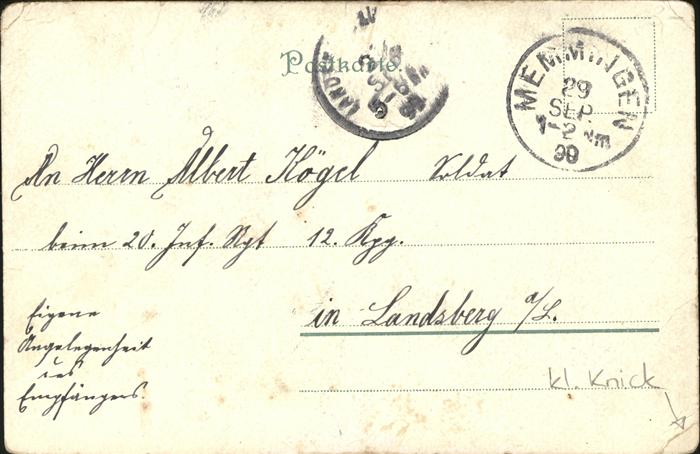 Postkarte
MEMMINGEN
29
SEP.
1-2 Nm
99
An Herrn Albert Kögel Soldat
beim 20. Inf. Rgt 12. Kpg.
in Landsberg a/L.
Eigene
Angelegenheit
des
Empfängers.
kl. Knick